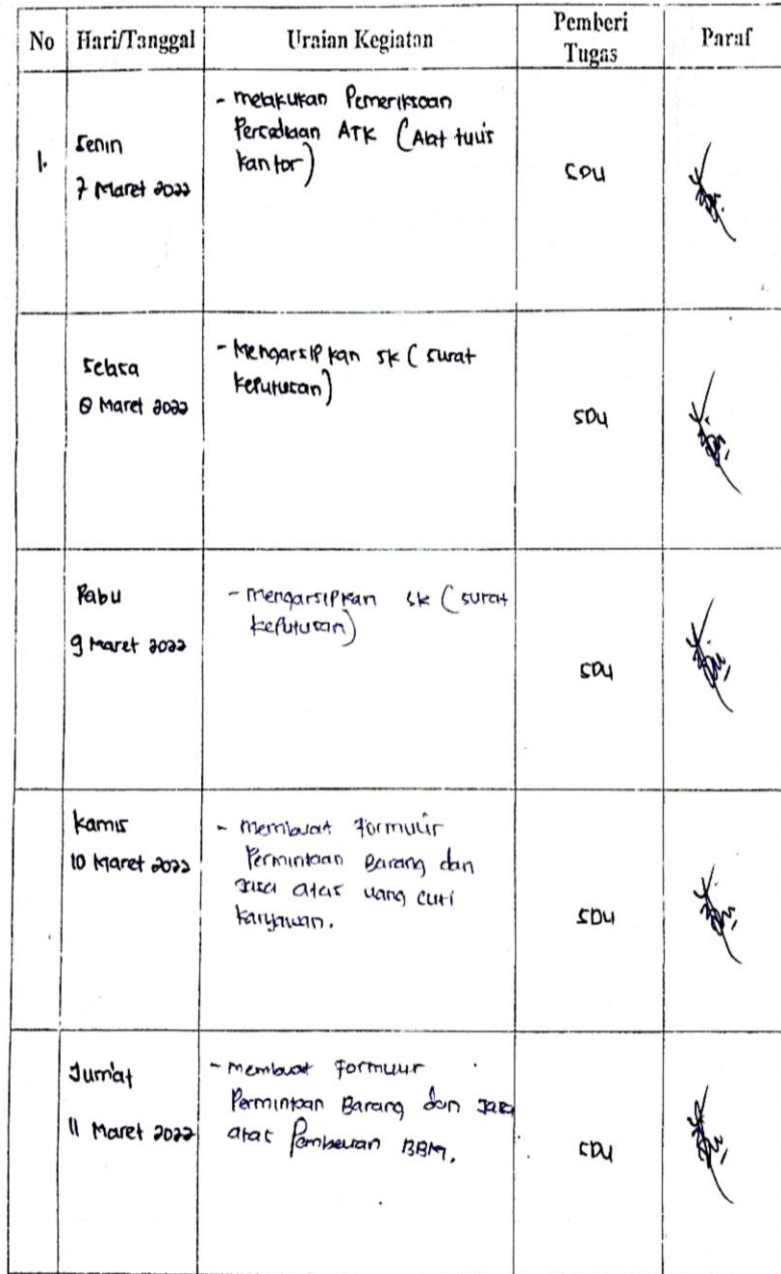 No Hari/Tanggal Uraian Kegiatan Pemberi Tugas Paraf
1. Senin
7 Maret 2022
- melakukan Pemeriksaan
Persediaan ATK (Alat tulis
kantor)
SDU
Selasa
8 Maret 2022
- Mengarsipkan SK (surat
keputusan)
SDU
Rabu
9 Maret 2022
- mengarsipkan SK (surat
keputusan)
SDU
Kamis
10 Maret 2022
- membuat Formulir
Permintaan Barang dan
Jasa atas uang cuti
karyawan.
SDU
Jum'at
11 Maret 2022
- membuat Formulir
Permintaan Barang dan Jasa
atas Pembelian BBM.
SDU